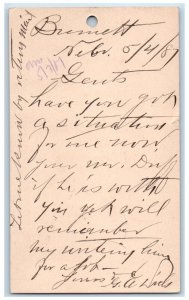 Burnett
Nebr. 5/4/87
Gents
have you got
a situation
for me now
your Mr. Duff
if he is with
you yet will
remember
my writing him
for a job
Yours
Let me know by return mail